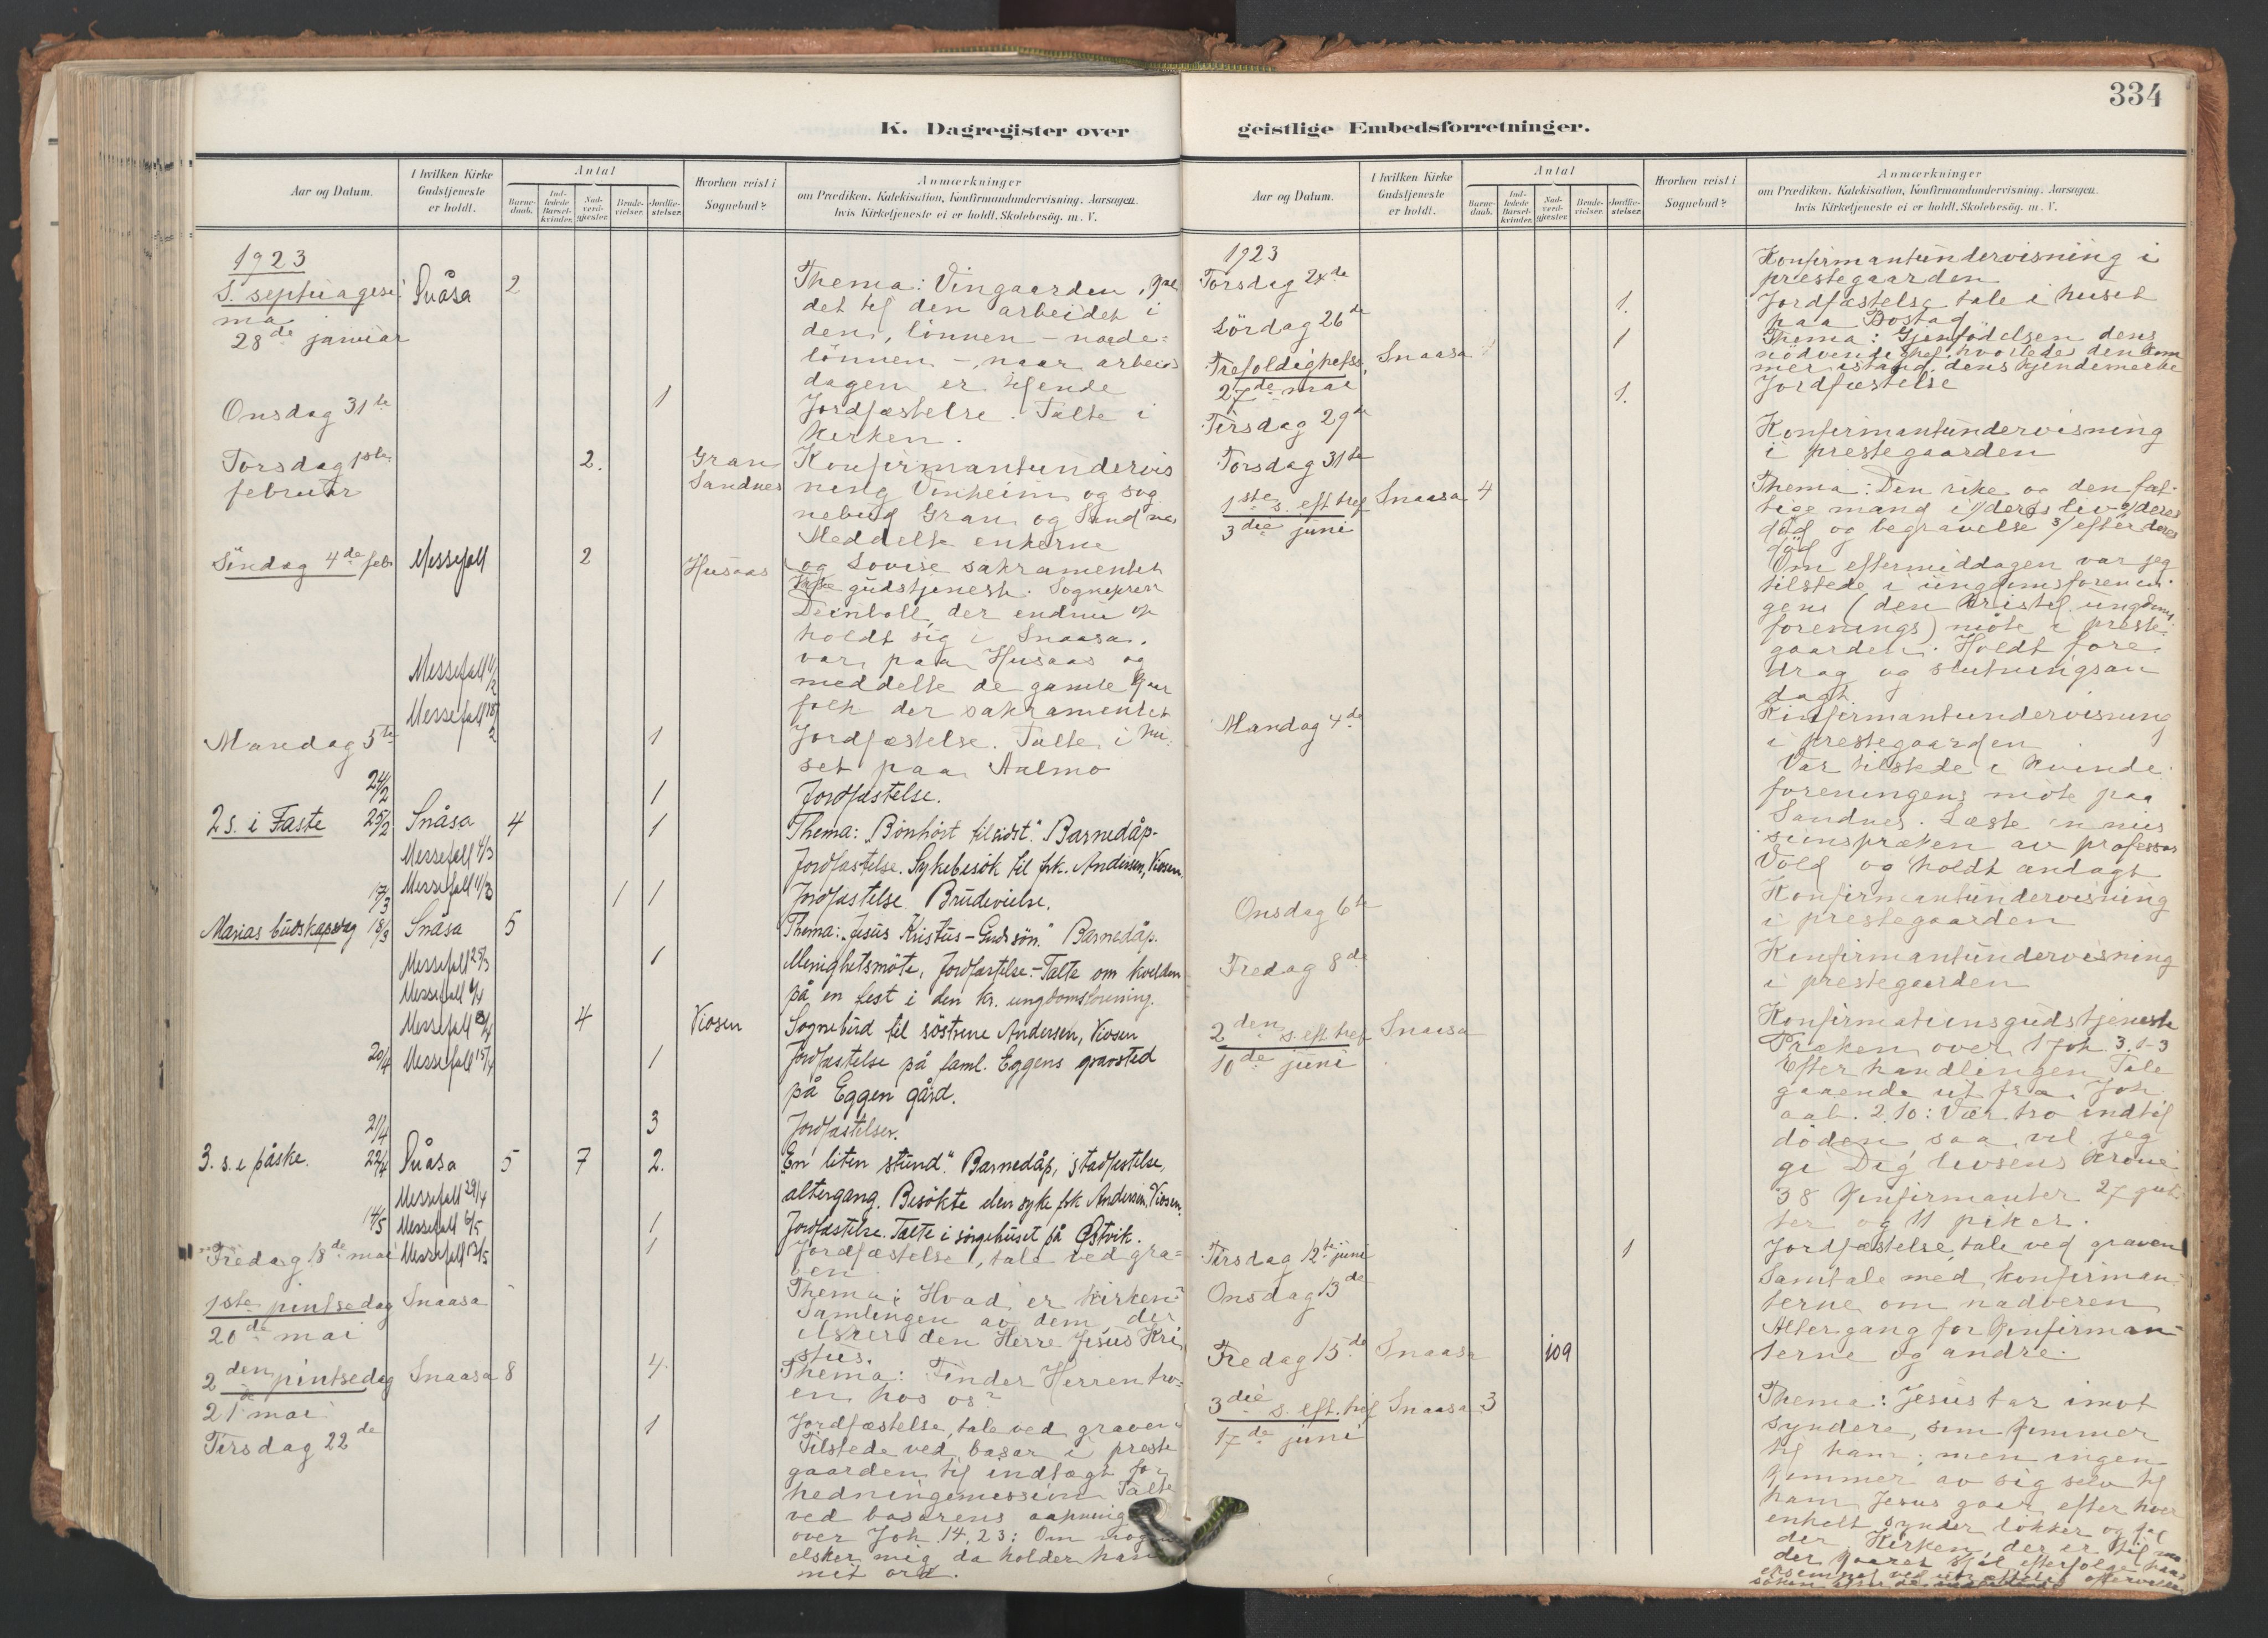 334
K. Dagregister over
geistlige Embedsforretninger.
Aar og Datum.
I hvilken Kirke
Gudstjeneste
er holdt.
Antal
Barne-
daab.
Ind-
ledede
Barsel-
kvinder.
Nad-
verd-
gjester.
Brude-
vielser.
Jordfæ-
stelser.
Hvorhen reist i
Sognebud?
Anmærkninger
om Prædiken, Katekisation, Konfirmandundervisning. Aarsagen.
hvis Kirketjeneste ei er holdt, Skolebesøg. m. V.
1923
S. septuagesi Snåsa 2 Thema: Vingaarden,
ma det til den arbeidet i
28de januar den, lönnen - naade-
lönnen - naar arbeids
dagen er tilende
Onsdag 31te 1 Jordfæstelse. Talte i
kirken.
Torsdag 1ste 2. Gran Konfirmantundervis
februar Sandnes ning Vinheim og sog
nebud Gran og Sandnes
Meddelte enkerne
Söndag 4de feb. Messefall 2 Husaas og Lovise sakramentet
gudstjeneste. Sogneprest
Deinboll, der endnu op
holdt sig i Snaasa.
var paa Husaas og
Messefall 11/2 meddelte de gamle
folk der sakramentet
Messefall 18/2
Mandag 5te 1 Jordfæstelse. Talte i hu-
set paa Aalmo
24/2 1 Jordfæstelse.
2 s. i Faste 25/2 Snåsa 4 1 Thema: "Bönhört tilsidst." Barnedåp.
Messefall 4/3 Jordfæstelse. Sykebesök til frk. Andersen, Viosen.
17/3 Messefall 11/3 1 1 Jordfæstelse. Brudevielse.
Marias budskapsdag 18/3 Snåsa 5 Thema: "Jesus Kristus - Guds sön." Barnedåp.
Messefall 25/3 1 Menighetsmöte, Jordfæstelse. - Talte om kvelden
Messefall 1/4 på en fest i den kr. ungdomsforening.
Messefall 8/4 4 Viosen Sognebud til söstrene Andersen, Viosen
20/4 Messefall 15/4 1 Jordfæstelse på faml. Eggens gravsted
på Eggen gård.
21/4 3 Jordfæstelser.
3. s. e påske. 22/4 Snåsa 5 7 2. "En liten stund". Barnedåp, jordfæstelse,
Messefall 29/4 altergang. Besökte den syke frk Andersen, Viosen.
14/5 Messefall 6/5 1 Jordfæstelse. Talte i sörgehuset på Östvik.
Fredag 18de mai Messefall 13/5 1 Jordfæstelse, tale ved gra-
ven
1ste pintsedag Snaasa Thema: Hvad er kirken?
20de mai Samlingen av dem, der
elsker den Herre Jesus Kri
stus.
2den pintsedag Snaasa 8 4. Thema: Finder Herren tro-
21 mai en hos os?
Tirsdag 22de 1 Jordfæstelse, tale ved graven
Tilstede ved basar i preste
gaarden til indtægt for
hedningemission Talte
ved basarens aapning
over Joh 14.23: Om nogen
elsker mig, da holder han
mit ord.
Aar og Datum.
I hvilken Kirke
Gudstjeneste
er holdt.
Antal
Barne-
daab.
Ind-
ledede
Barsel-
kvinder.
Nad-
verd-
gjester.
Brude-
vielser.
Jordfæ-
stelser.
Hvorhen reist i
Sognebud?
Anmærkninger
om Prædiken, Katekisation, Konfirmandundervisning. Aarsagen.
hvis Kirketjeneste ei er holdt, Skolebesøg. m. V.
1923 Konfirmantundervisning i
Torsdag 24de prestegaarden
1. Jordfæstelse tale i huset
Lördag 26de paa Bostad
Trefoldighetss. Snaasa 1 Thema: Gjenfödelsen dens
27de mai nödvendighet, hvorledes den kom
mer istand, dens kjendemerke
Tirsdag 29de 1. Jordfæstelse
Torsdag 31te Konfirmantundervisning
i prestegaarden
1ste s. eft tref Snaasa 4 Thema: Den rike og den fat-
3die juni tige mand i 1/ deres liv 2/ deres
död og begravelse 3/ efter deres
död
Om eftermiddagen var jeg
tilstede i ungdomsforenin-
gens (den kristel. ungdoms
forenings) möte i preste-
gaarden. Holdt fore-
drag og slutningsan
dagt.
Mandag 4de Konfirmantundervisning
i prestegaarden
Var tilstede i kvinde-
foreningens möte paa
Sandnes. Læste en mis
sionspræken av professor
Vold og holdt andagt
Onsdag 6te Konfirmantundervisning
i prestegaarden
Fredag 8de Konfirmantundervisning
i prestegaarden
2den s. eft tref Snaasa Konfirmationsgudstjeneste
10de juni Præken over 1 Joh. 3.1-3
Efter handlingen Tale
gaaende ut fra Joh.
aab. 2.10: Vær tro indtil
döden saa vil jeg
gi Dig livsens krone
38 konfirmanter 27 gut-
ter og 11 piker.
Tirsdag 12te juni 1 Jordfæstelse, tale ved graven
Onsdag 13de Samtale med konfirman-
terne om nadveren
Fredag 15de Snaasa 109 Altergang for konfirman-
terne og andre.
3die s. eft. tref Snaasa 3 Thema: Jesus tar imot
17de juni syndere, som kommer
til ham; men ingen
kommer av sig selv til
ham Jesus gaar efter hver
enkelt synder lokker og
der. Kirken, der er